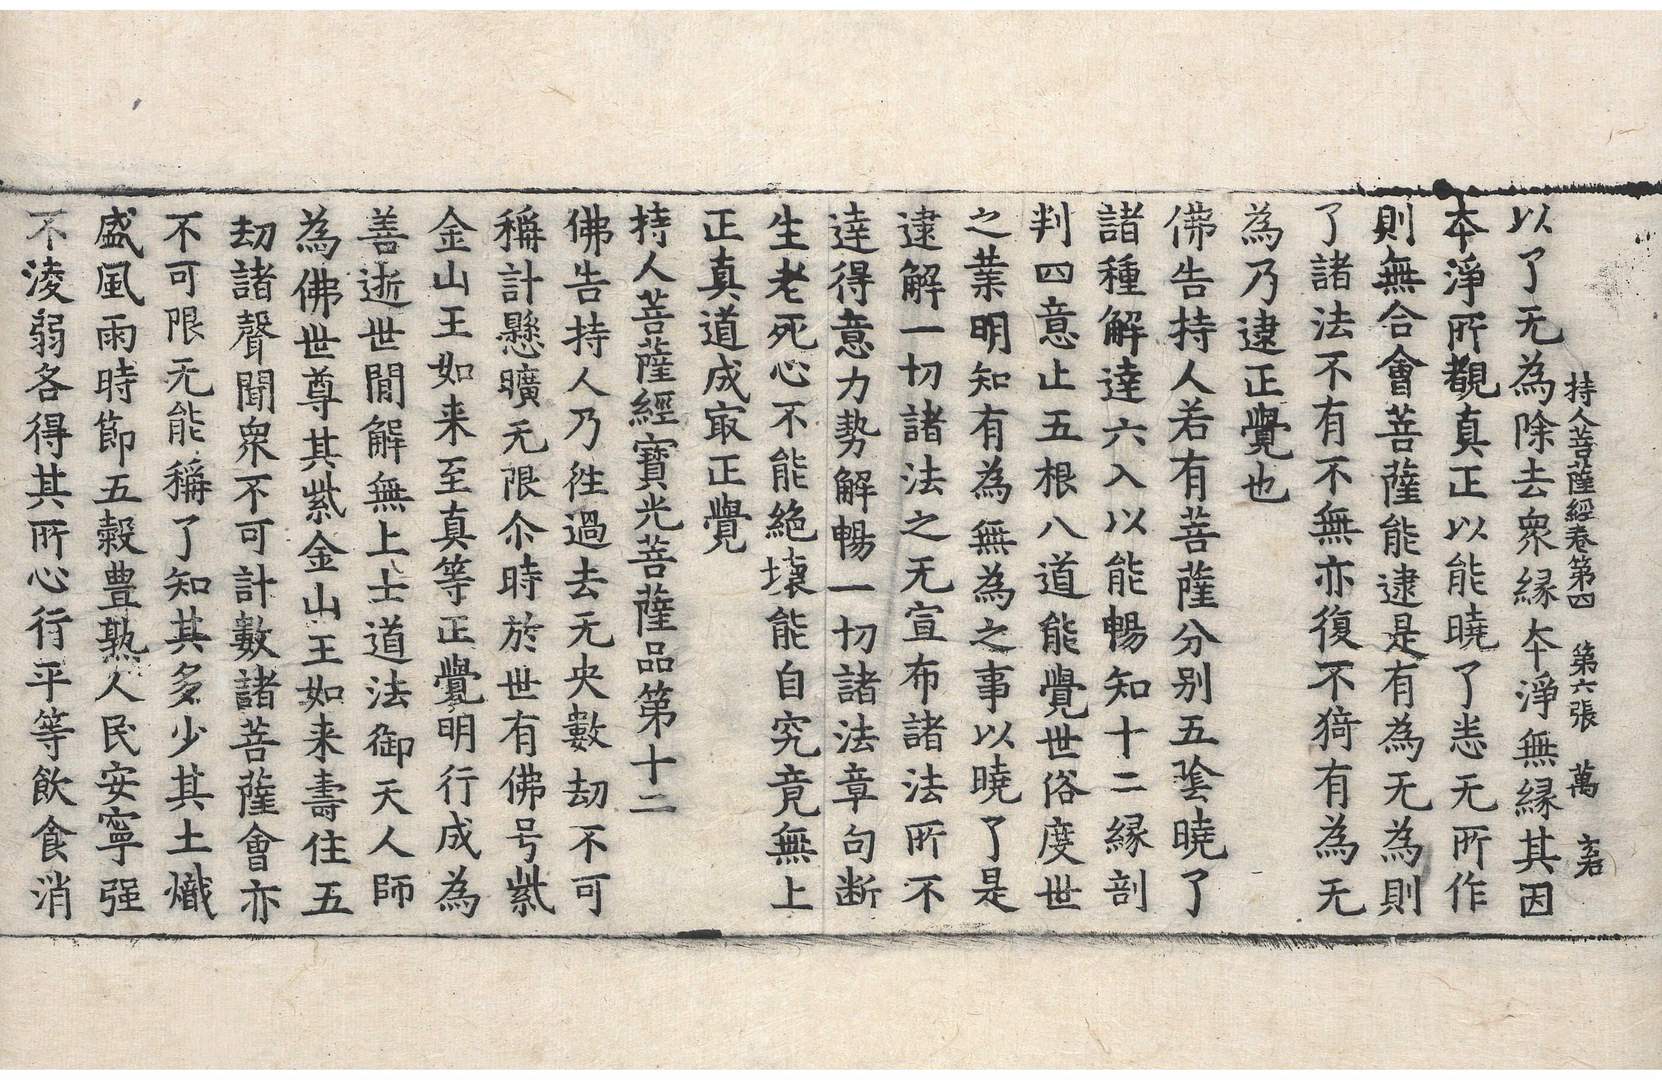 持人菩薩經卷第四　第六張　萬
以了无為除去衆縁本淨無縁其因
本淨所覩真正以能曉了恚无所作
則無合會菩薩能逮是有為无為則
了諸法不有不無亦復不猗有為无
為乃逮正覺也
佛告持人若有菩薩分别五隂曉了
諸種解達六入以能暢知十二縁剖
判四意止五根八道能覺世俗度世
之業明知有為無為之事以曉了是
逮解一切諸法之无宣布諸法所不
達得意力勢解暢一切諸法章句断
生老死心不能絶壞能自究竟無上
正真道成㝡正覺
持人菩薩經寶光菩薩品第十二
佛告持人乃徃過去无央數劫不可
稱計懸曠无限尒時於世有佛号紫
金山王如来至真等正覺明行成為
善逝世間解無上士道法御天人師
為佛世尊其紫金山王如来壽住五
劫諸聲聞衆不可計數諸菩薩會亦
不可限无能稱了知其多少其土熾
盛風雨時節五穀豊熟人民安寧强
不淩弱各得其所心行平等飲食消